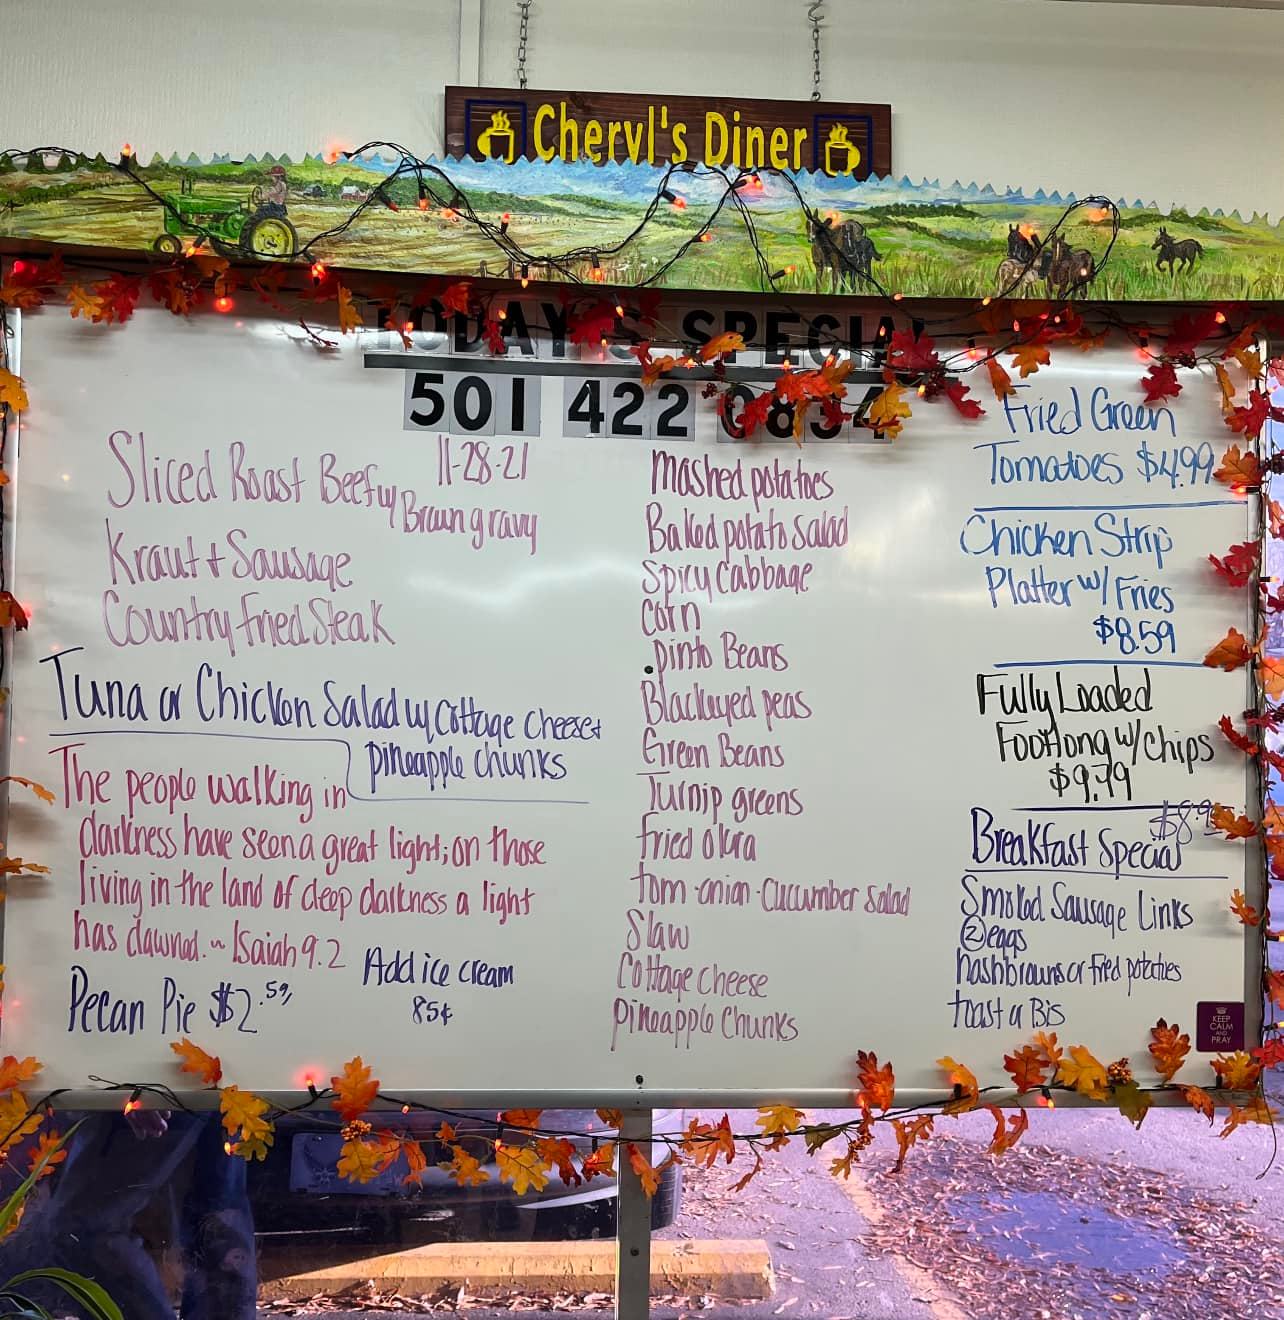 Cheryl's Diner
TODAY'S SPECIAL
501 422 0834
11-28-21
Sliced Roast Beef w/
Brown gravy
Kraut + Sausage
Country Fried Steak
Tuna or Chicken Salad w/ Cottage Cheese +
pineapple chunks
The people walking in
darkness have seen a great light; on those
living in the land of deep darkness a light
has dawned. ~ Isaiah 9.2
Pecan Pie $2.59
Add ice cream
85¢
Mashed potatoes
Baked potato salad
Spicy Cabbage
Corn
pinto Beans
Blackeyed peas
Green Beans
Turnip greens
Fried okra
tom-onion-Cucumber Salad
Slaw
Cottage Cheese
pineapple Chunks
Fried Green
Tomatoes $4.99
Chicken Strip
Platter w/ Fries
$8.59
Fully Loaded
Footlong w/ Chips
$9.79
Breakfast Special
Smoked Sausage Links
2 eggs
hashbrowns or fried potatoes
toast or Bis
KEEP
CALM
AND
PRAY